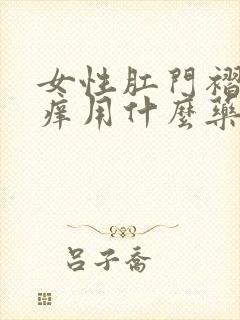 女性肛門褶
痒用什麼藥
呂子喬